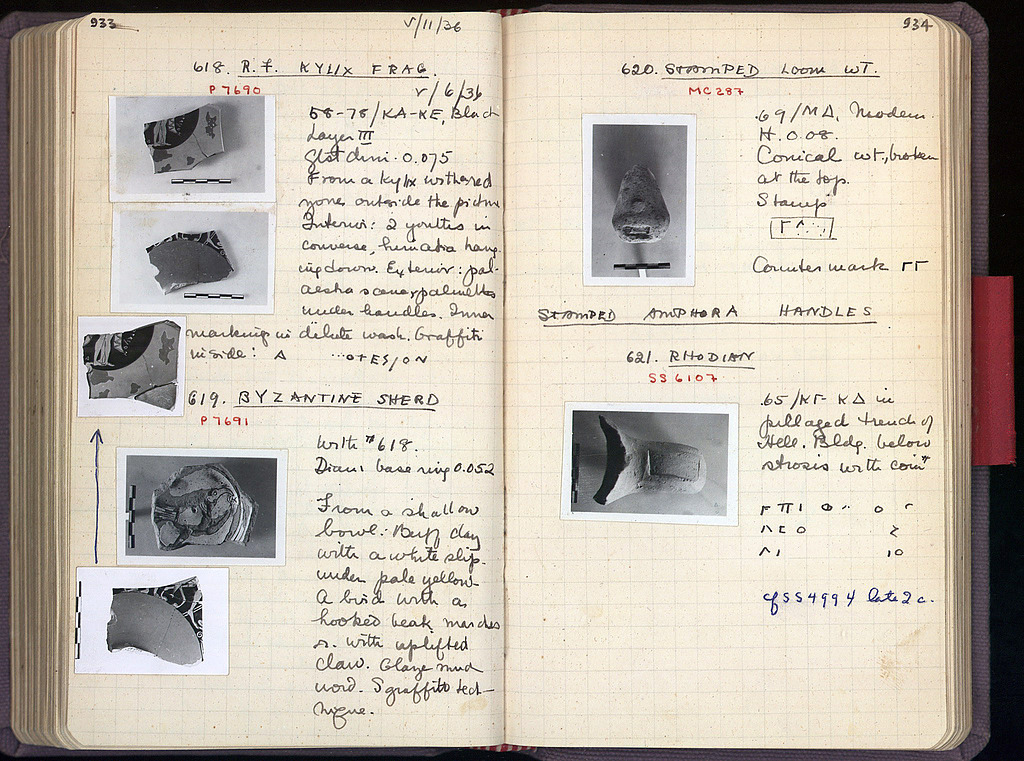 933
V/11/36
618. R.F. KYLIX FRAG.
P 7690
V/6/36
58-78/KA-KE, Black
Layer III
Gst dim. 0.075
From a kylix with red
zone outside the picture
Interior: 2 youths in
converse, himatia hang-
ing down. Exterior: pal-
aestra scene; palmettes
under handles. Inner
marking in dilute wash. Graffiti
inside: Δ
619. BYZANTINE SHERD
P 7691
With #618.
Diam base ring 0.052
From a shallow
bowl: Buff clay
with a white slip
under pale yellow
A bird with a
hooked beak marches
r. with uplifted
claw. Glaze mud
Sgraffito tech-
nique.
934
620. STAMPED LOOM WT.
MC 287
.69/ΜΔ, Modern.
H. 0.08.
Conical wt., broken
at the top.
Stamp
Countermark ΓΓ
STAMPED AMPHORA HANDLES
621. RHODIAN
SS 6107
.65/ΚΓ-ΚΔ in
pillaged trench of
Hell. Bldg. below
strosis with coin
cf SS 4994 late 2 c.